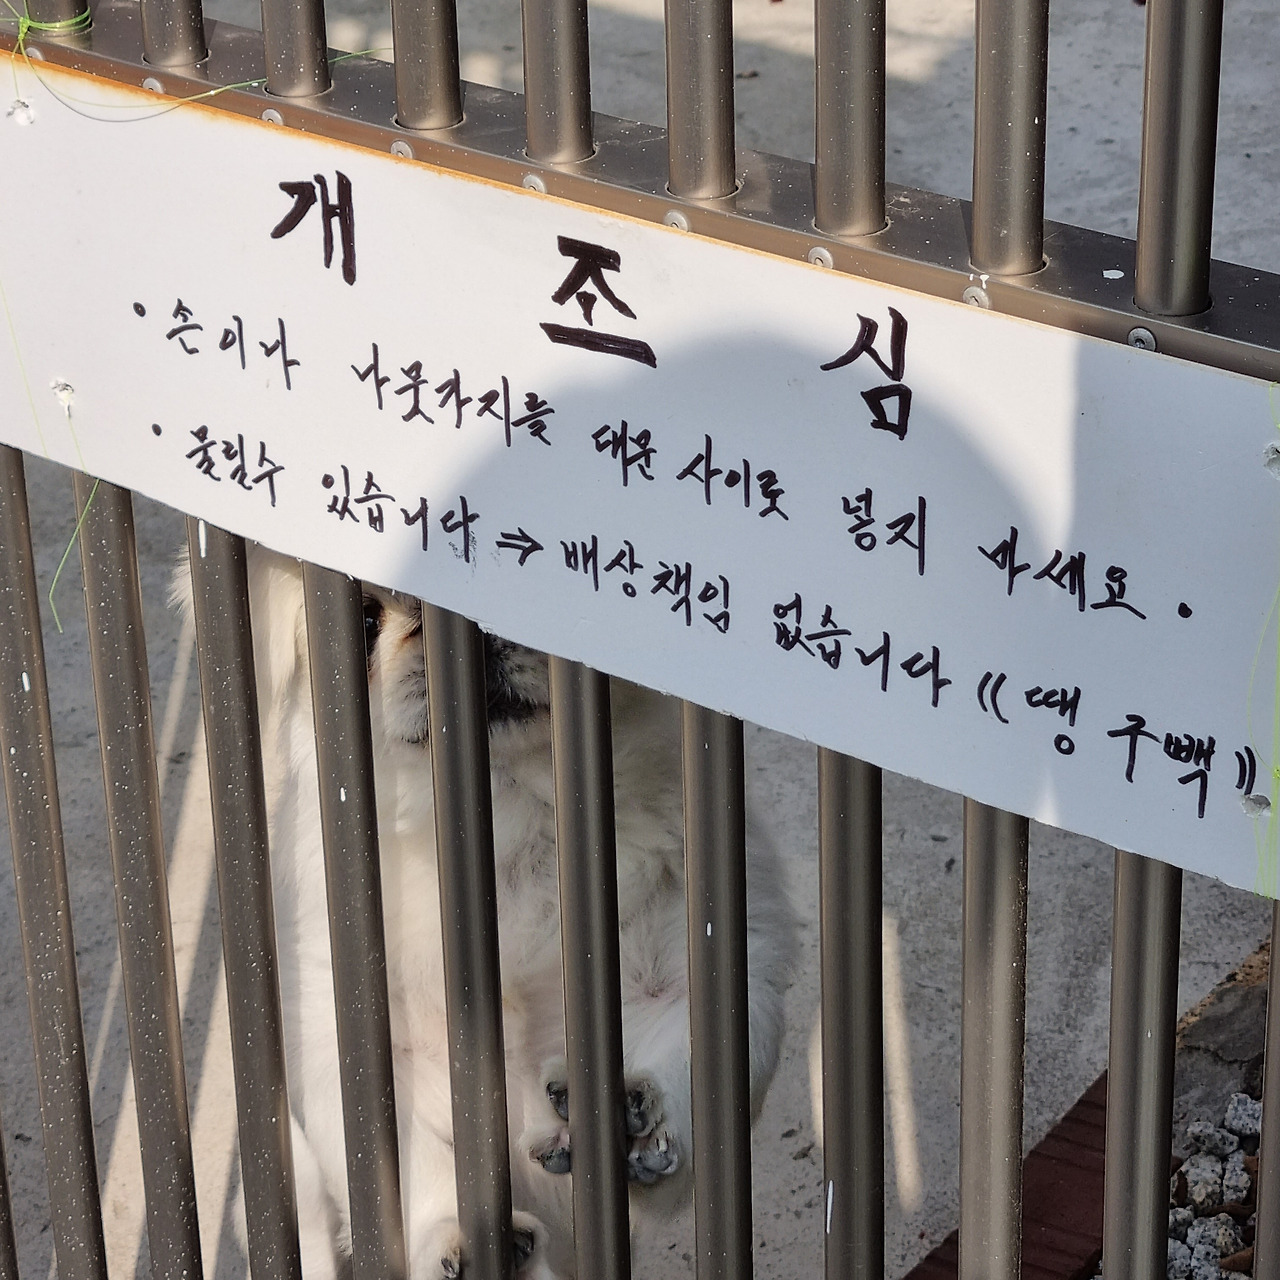 개 조 심
· 손이나 나뭇가지를 대문 사이로 넣지 마세요.
· 물릴수 있습니다 ⇒ 배상책임 없습니다 ((땡구백))